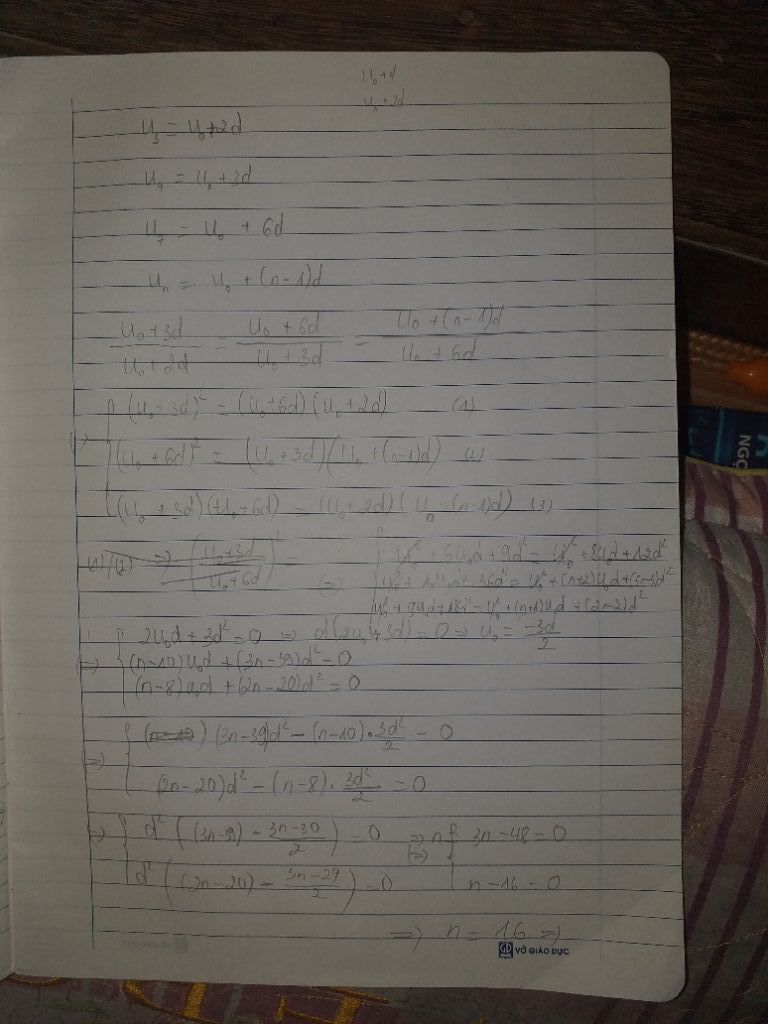 u₀+d
u₀+2d
u₃ = u₀+2d
u₄ = u₀ + 3d
u₇ = u₀ + 6d
uₙ = u₀ + (n-1)d
(u₀+3d)/(u₀+2d) = (u₀ + 6d)/(u₀ + 3d) = (u₀ + (n-1)d)/(u₀ + 6d)
(u₀ + 3d)² = (u₀+6d)(u₀+2d) (1)
(u₀ + 6d)² = (u₀ + 3d)(u₀ + (n-1)d) (2)
(u₀ + 3d)(u₀+6d) = (u₀+2d)(u₀+(n-1)d) (3)
(1)/(2) => ((u₀+3d)/(u₀+6d))² =
u₀² + 6u₀d + 9d² = u₀² + 8u₀d + 12d²
u₀² + 12u₀d + 36d² = u₀² + (n+2)u₀d + (3n-3)d²
u₀² + 9u₀d + 18d² = u₀² + (n+1)u₀d + (2n-2)d²
=> 2u₀d + 3d² = 0 => d(2u₀+3d) = 0 => u₀ = -3d/2
(n-10)u₀d + (3n-39)d² = 0
(n-8)u₀d + (2n-20)d² = 0
=> (n-10) (3n-39)d² - (n-10).3d²/2 = 0
(2n-20)d² - (n-8).3d²/2 = 0
=> d²((3n-39) - (3n-30)/2) = 0 => 3n-48=0
d²((2n-20) - (3n-24)/2) = 0 n-16=0
=> n = 16 =>
VỞ GIÁO DỤC
NGỌ